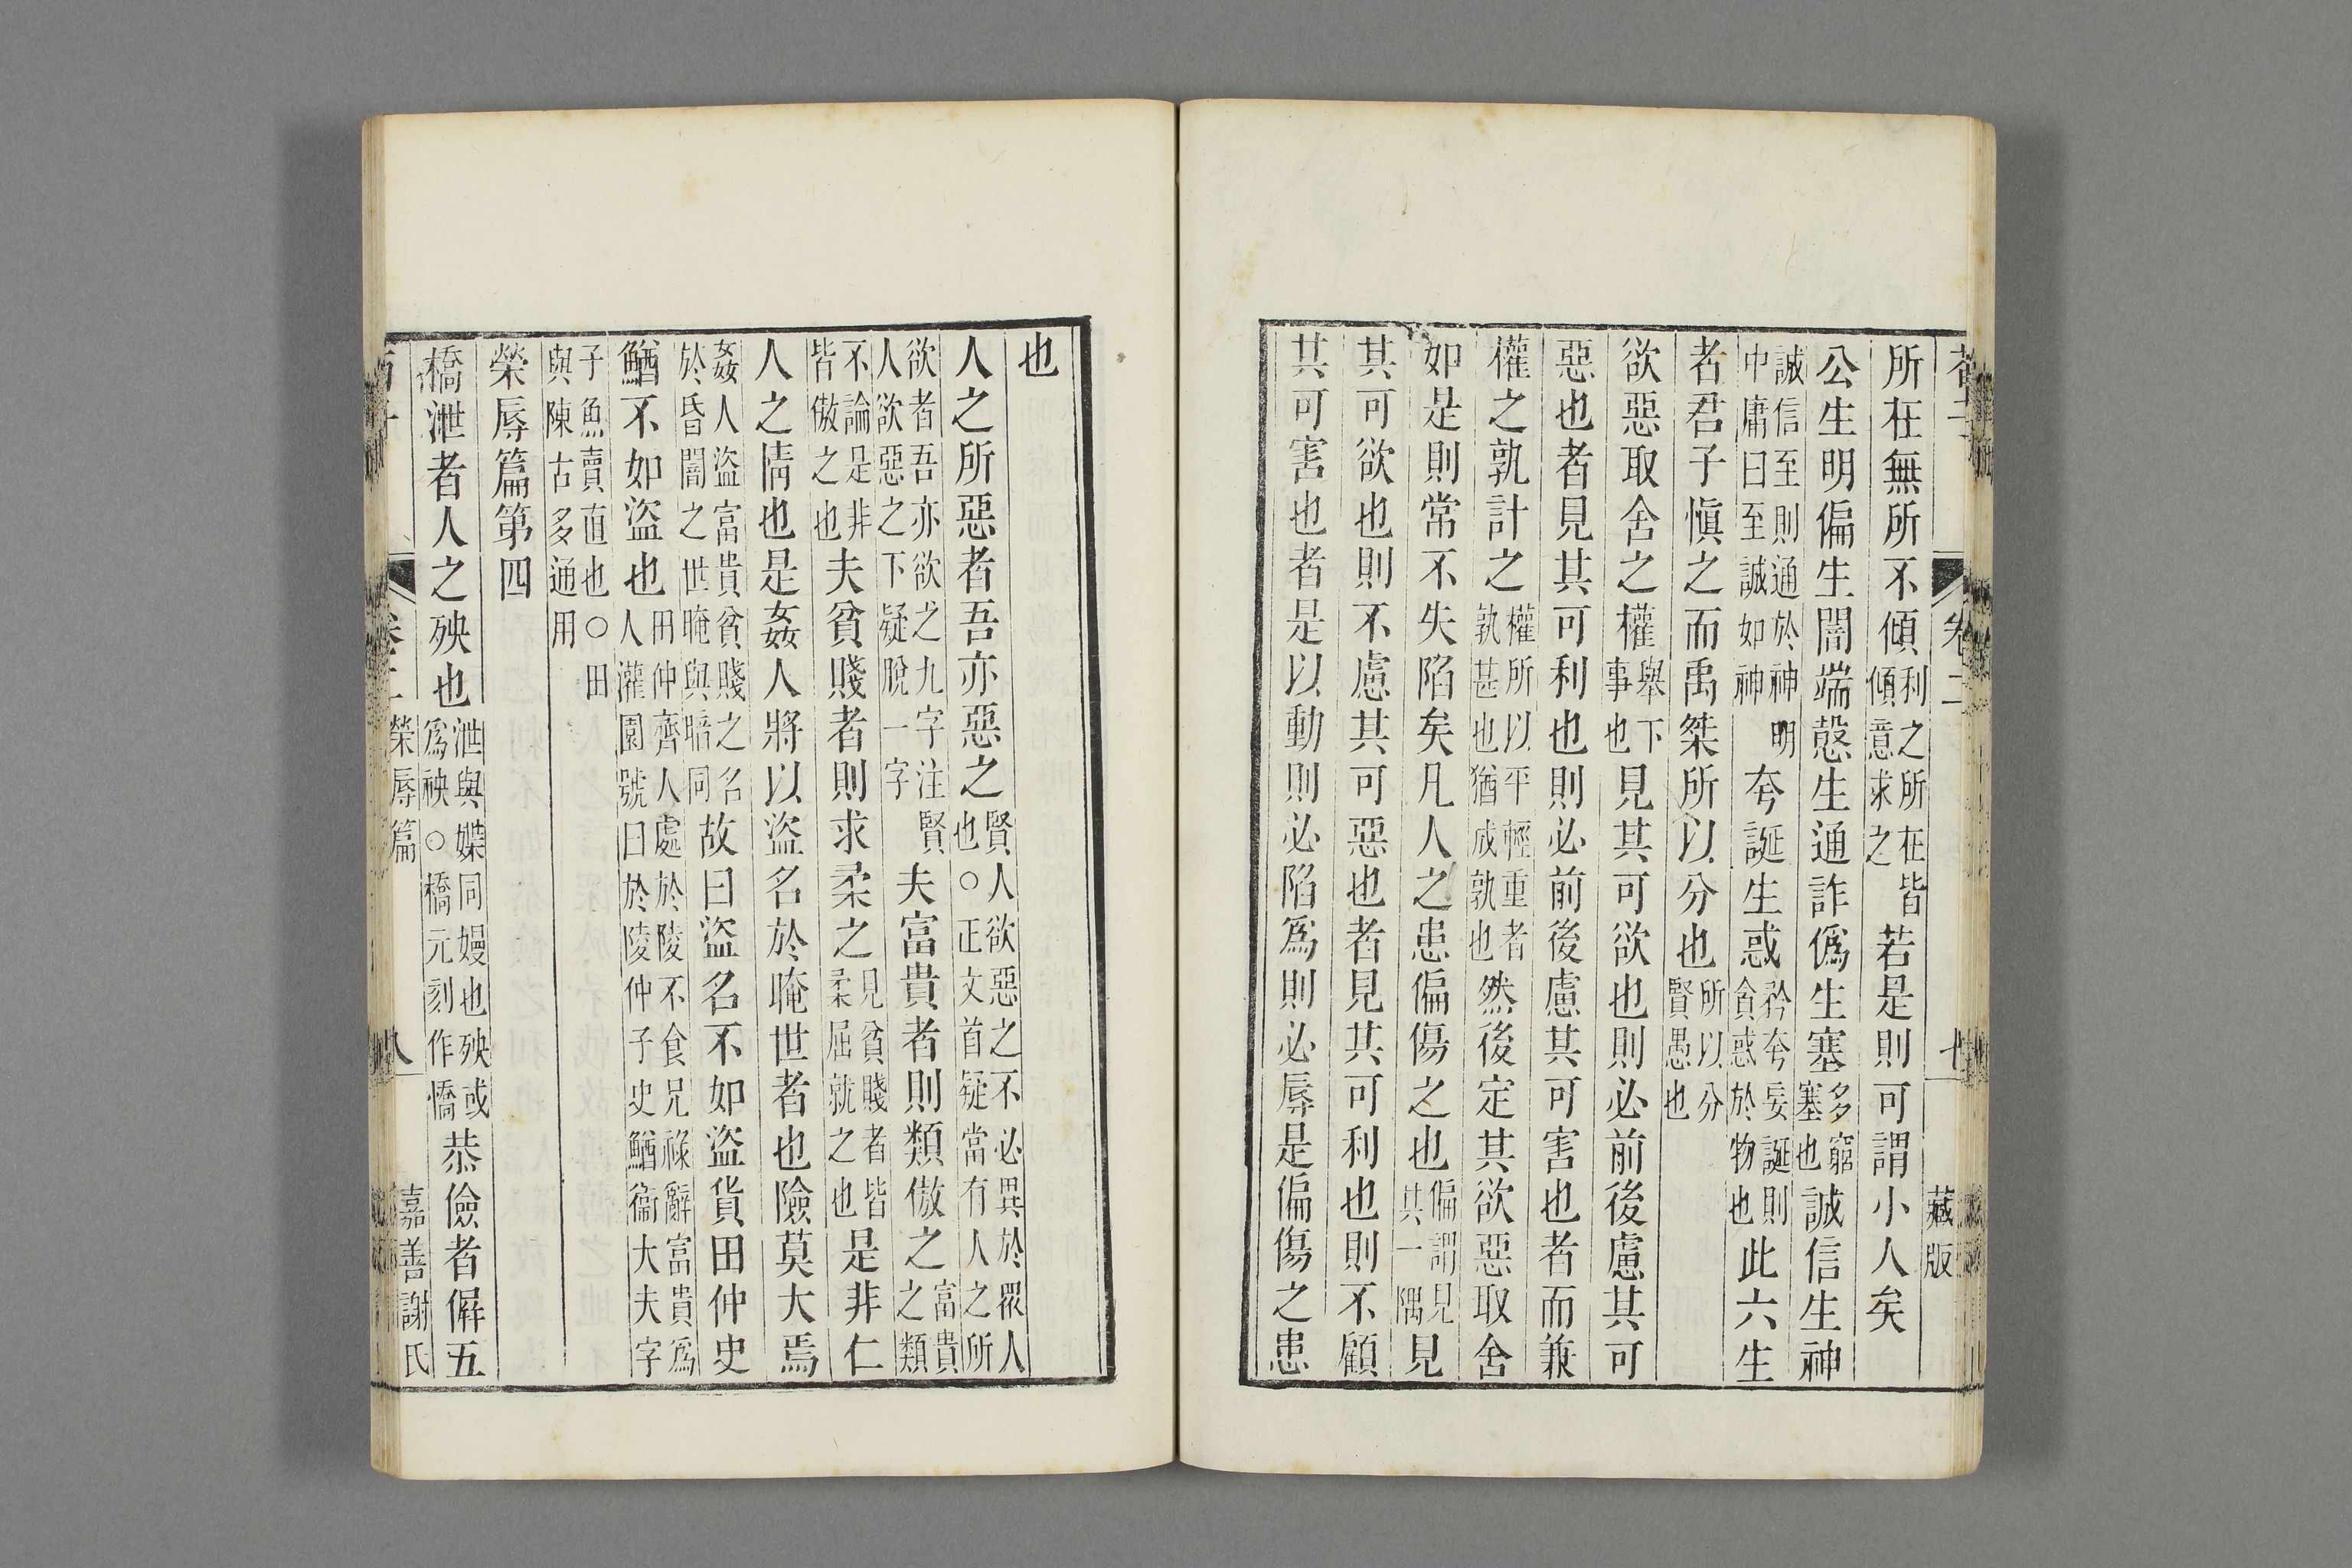 荀子 卷二 七 藏版
所在無所不傾利之所在皆傾意求之若是則可謂小人矣
公生明偏生闇端慤生通詐僞生塞多窮塞也誠信生神
誠信至則通於神明中庸曰至誠如神夸誕生惑矜夸妄誕則貪惑於物也此六生
者君子愼之而禹桀所以分也所以分賢愚也
欲惡取舍之權舉下事也見其可欲也則必前後慮其可
惡也者見其可利也則必前後慮其可害也者而兼
權之孰計之權所以平輕重者孰甚也猶成孰也然後定其欲惡取舍
如是則常不失陷矣凡人之患偏傷之也偏謂見其一隅見
其可欲也則不慮其可惡也者見其可利也則不顧
其可害也者是以動則必陷爲則必辱是偏傷之患
也
人之所惡者吾亦惡之賢人欲惡之不必異於眾人也○正文首疑當有人之所
欲者吾亦欲之九字注賢人欲惡之下疑脫一字夫富貴者則類傲之富貴之類
不論是非皆傲之也夫貧賤者則求柔之見貧賤者皆柔屈就之也是非仁
人之情也是姦人將以盜名於晻世者也險莫大焉
姦人盜富貴貧賤之名於昏闇之世晻與暗同故曰盜名不如盜貨田仲史
鰌不如盜也田仲齊人處於陵不食兄祿辭富貴爲人灌園號曰於陵仲子史鰌衞大夫字
子魚賣直也○田與陳古多通用
榮辱篇第四
橋泄者人之殃也泄與媟同嫚也殃或爲袂○橋元刻作憍恭儉者偋五
卷二 榮辱篇 八 嘉善謝氏